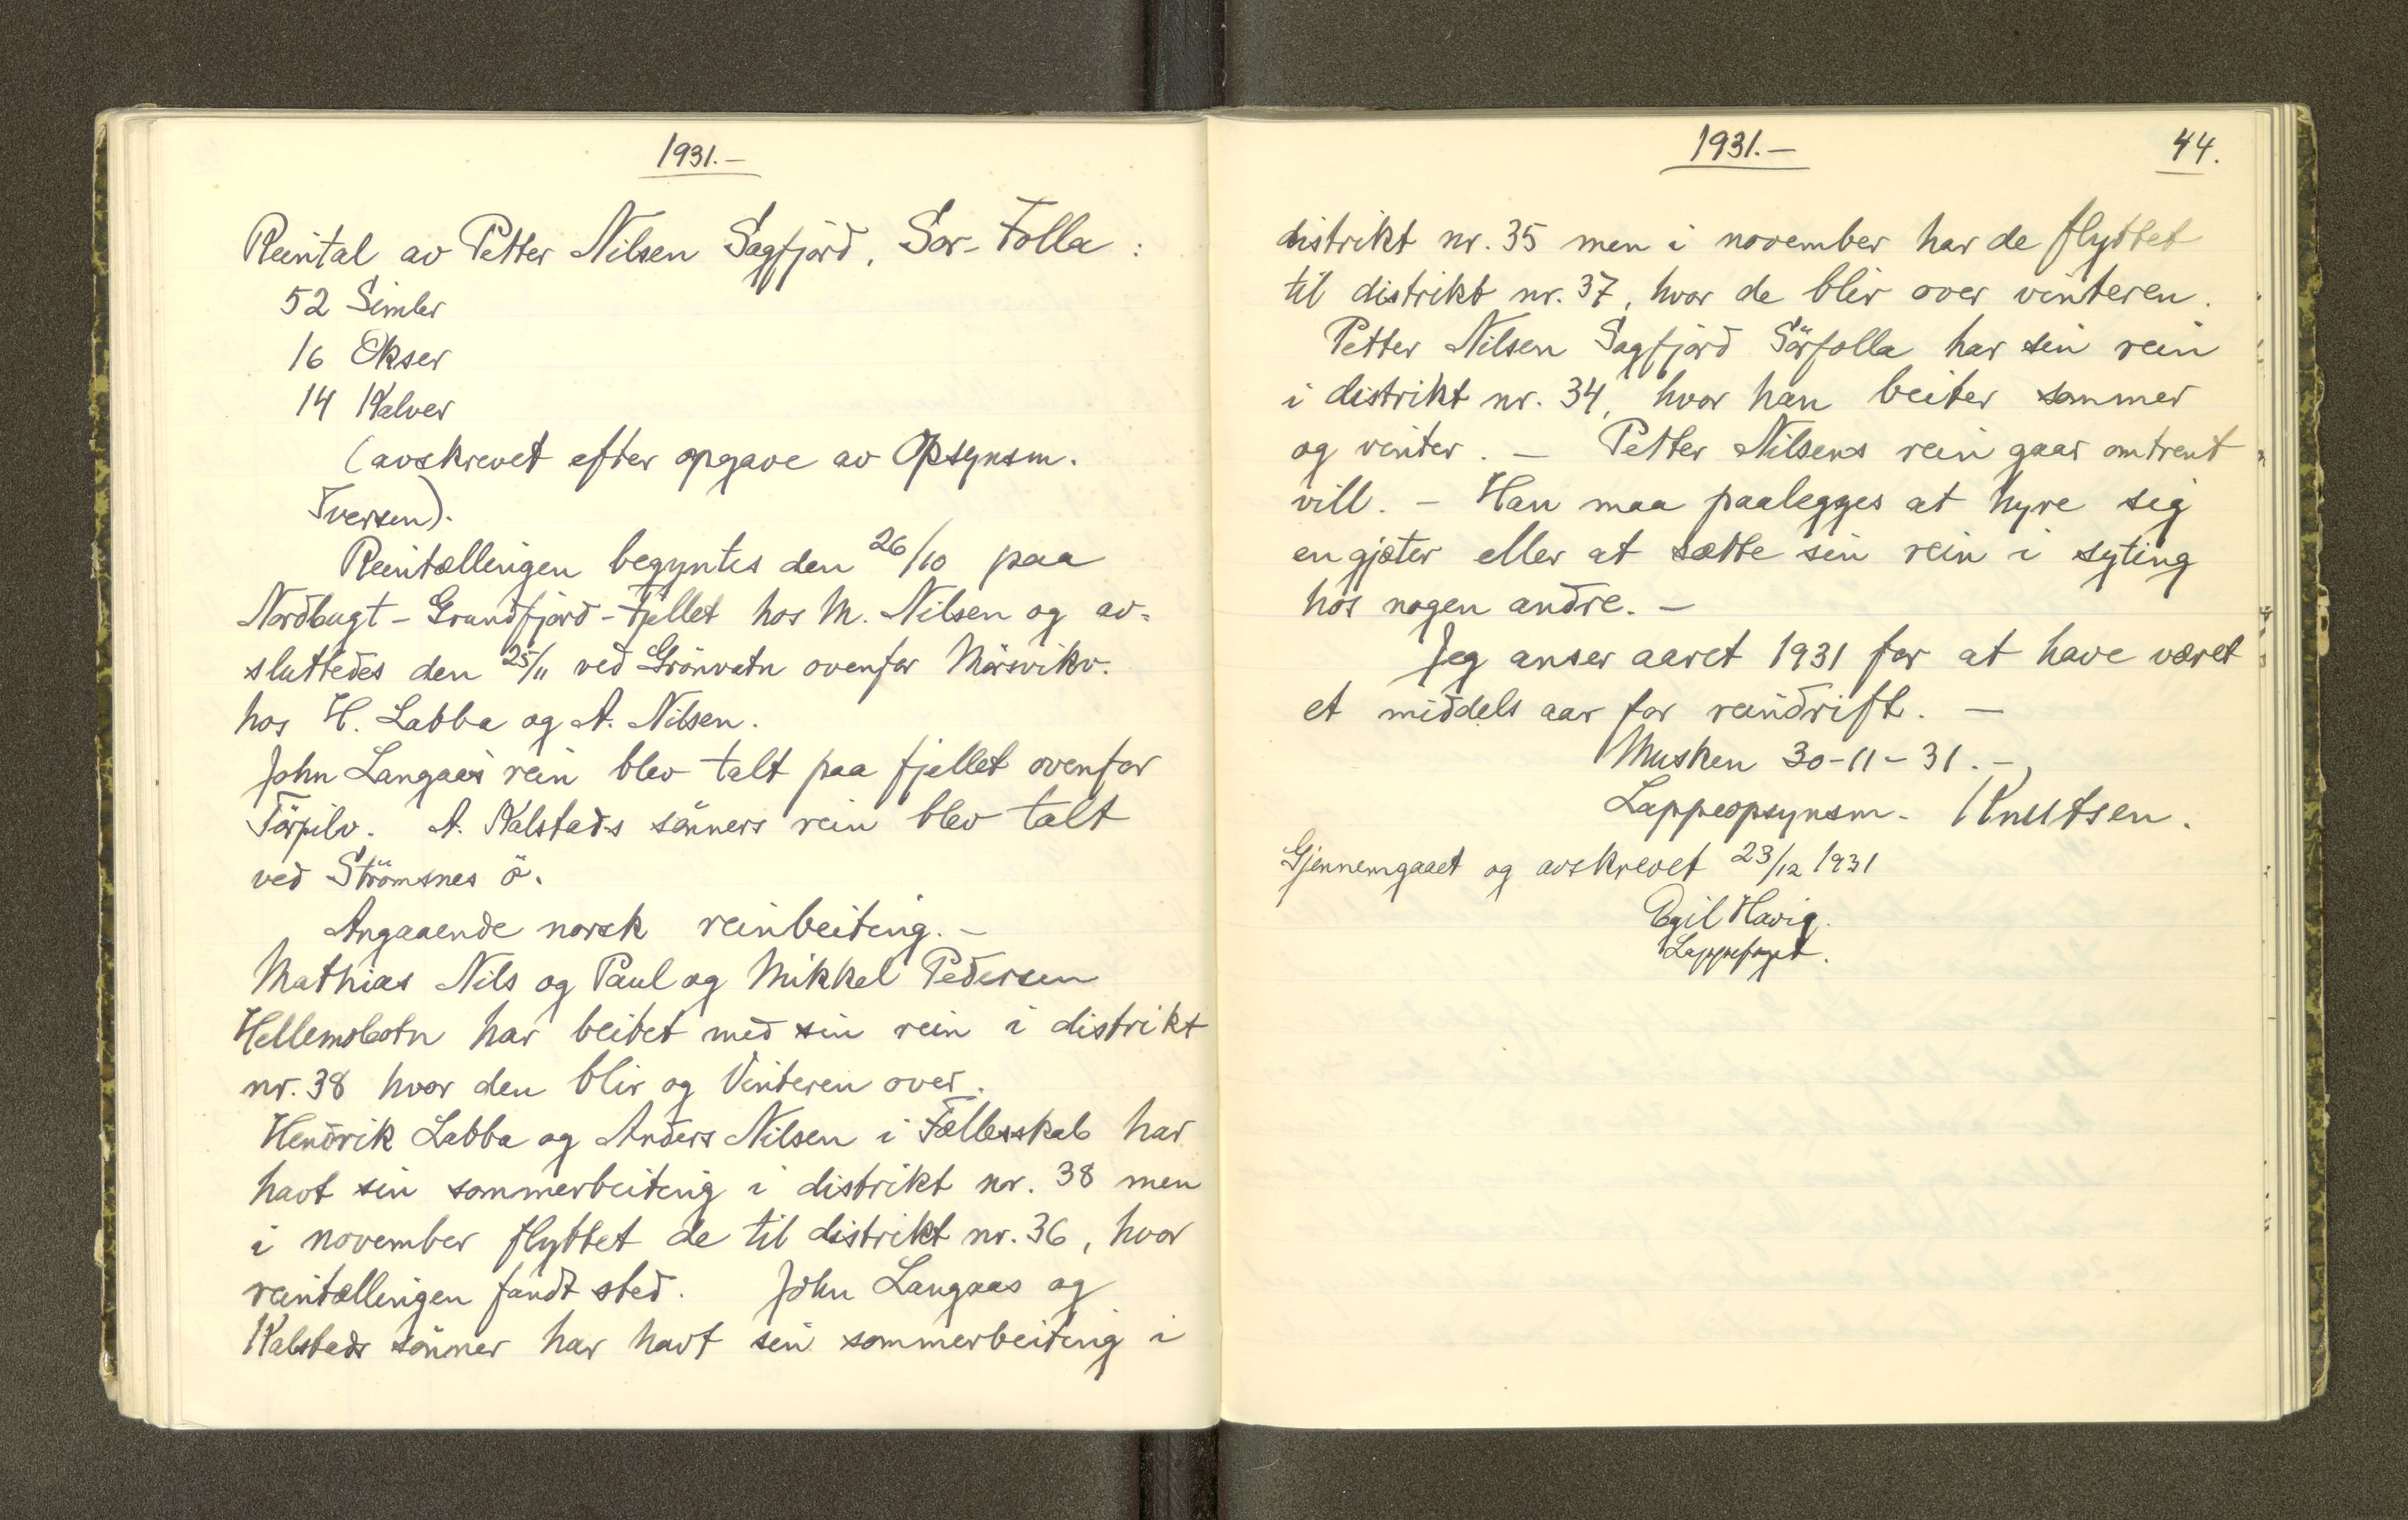 1931.-
Reintal av Petter Nilsen Sagfjord, Sør-Folla :
52 Simler
16 Okser
14 Kalver
(avskrevet efter opgave av Opsynsm.
Iversen).
Reintællingen begyntes den 26/10 paa
Nordbugt - Grundfjord - fjellet hos M. Nilsen og av=
sluttedes den 25/11 ved Grönvatn ovenfor Mörsvikv.
hos H. Labba og A. Nilsen.
John Langaas rein blev talt paa fjellet ovenfor
A. Kalstads sönners rein blev talt
ved Strömsnes ö.
Angaaende norsk reinbeiting. -
Mathias Nils og Paul og Mikkel Pedersen
Hellemobotn har beitet med sin rein i distrikt
nr. 38 hvor den blir og Vinteren over.
Hendrik Labba og Anders Nilsen i Fællesskab har
havt sin sommerbeiting i distrikt nr. 38 men
i november flyttet de til distrikt nr. 36, hvor
reintællingen fandt sted. John Langaas og
Kalstads sönner har havt sin sommerbeiting i
1931.-
44.
distrikt nr. 35 men i november har de flyttet
til distrikt nr. 37, hvor de blir over vinteren.
Petter Nilsen Sagfjord Sörfolla har sin rein
i distrikt nr. 34, hvor han beiter sommer
og vinter. - Petter Nilsens rein gaar omtrent
vill. - Han maa paalegges at hyre sig
en gjæter eller at sætte sin rein i syting
hos nogen andre. -
Jeg anser aaret 1931 for at have været
et middels aar for reindrift. -
Musken 30-11-31. -
Lappeopsynsm. Knutsen.
Gjennemgaaet og avskrevet 23/12 1931
Egil Havig.
Lappefogt.